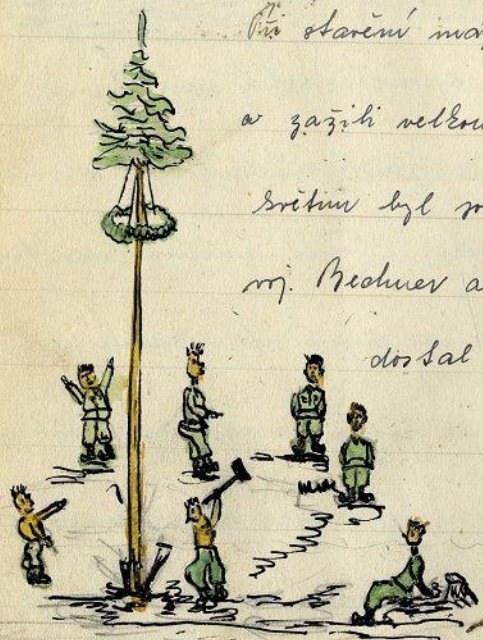 Při stavění máj
a zažili velkou
květin byl
voj. Bechner a
dostal